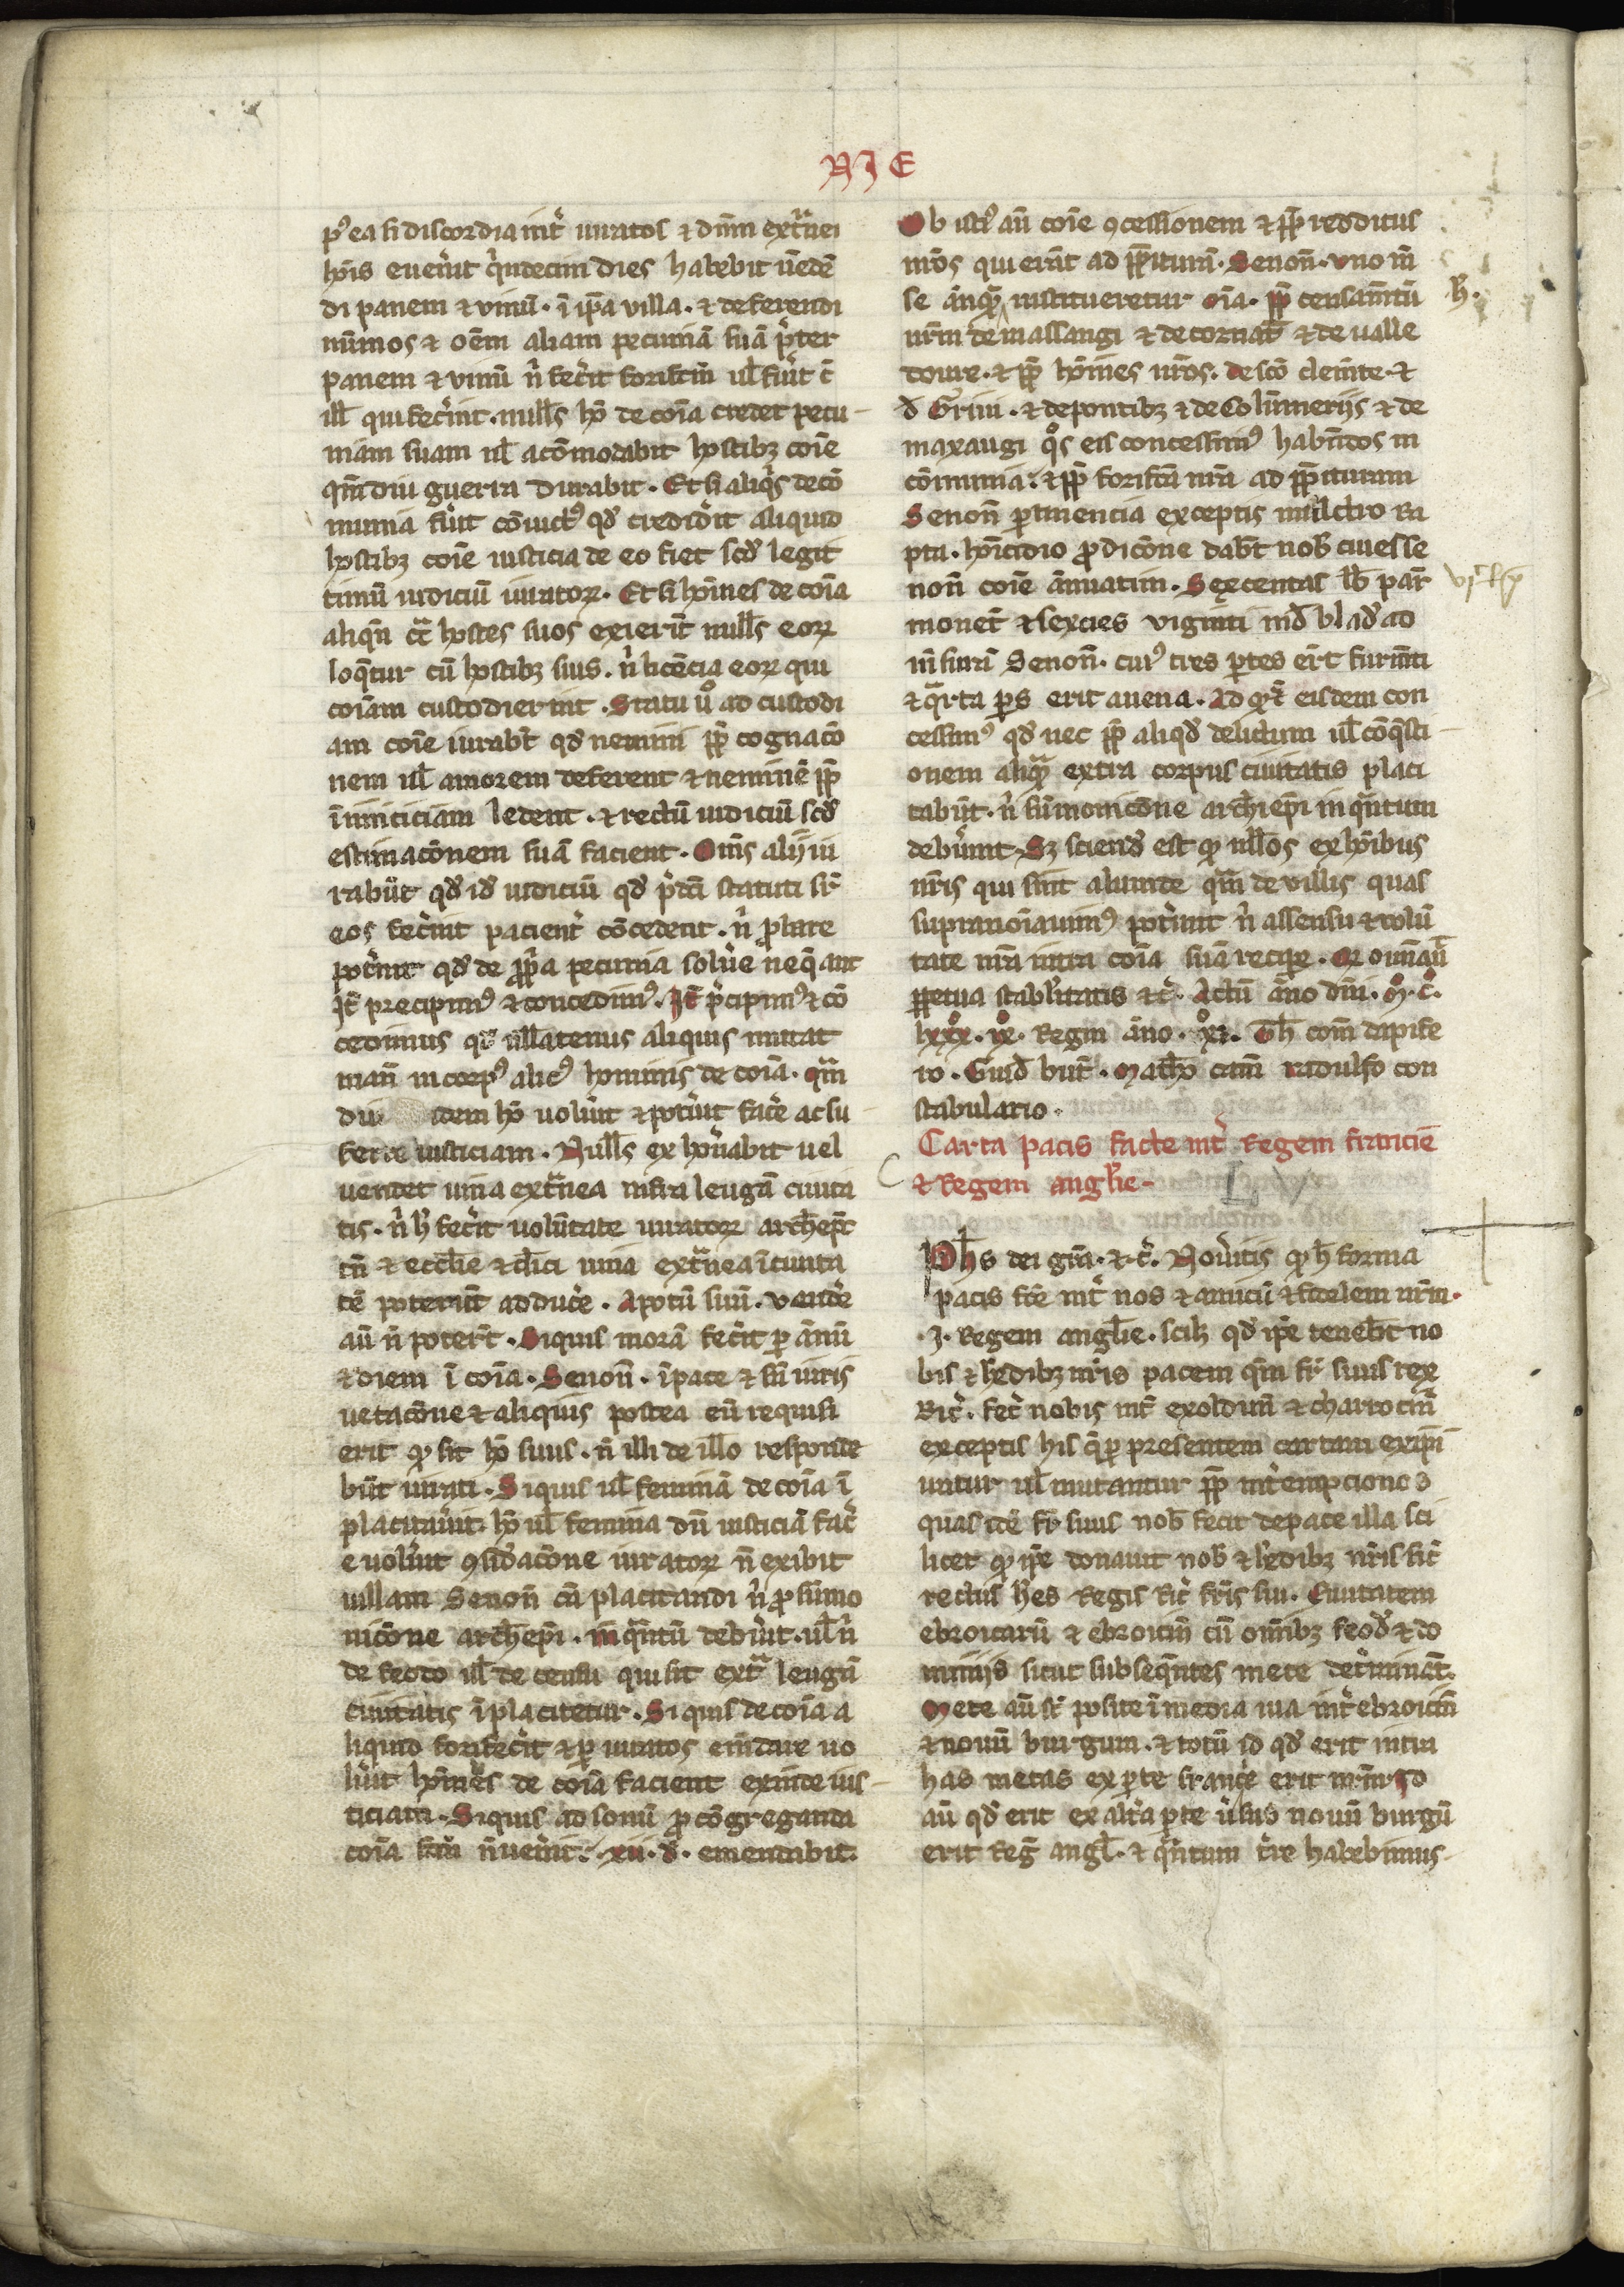 NIE
pꝰ ea si discordia int͛ iuratos ⁊ dn̄m ext̾nei
ho͛is euen͛it q͛ndecim dies habebit uēdē
di panem ⁊ vinū · ī ip̄a villa · ⁊ deferendi
nūmos ⁊ oēm aliam pecuniā suā p͛ter
panem ⁊ vinū n͛ fec͛it forifc̄m ul̄ fu͛it c̄
ill̄ qui fec͛int · null̄s ho̅ de coi͞a credet pecu-
niam suam ul̄ acōmodabit hostibꝫ coīe
qm̄diu guerra durabit · Et si aliq͛s de cō
munia fu͛it cōuictꝰ qd̄ credid͛it aliquid
hostibꝫ coīe iusticia de eo fiet scd̄ legit
timū iudiciū iuratoꝝ · Et si ho̅ines de coi͞a
aliqn̄ ct̾ hostes suos exierīt null̄s eoꝝ
loq̄tur cū hostibꝫ suis · n͛ licēcia eoꝝ qui
coīam custodierint · Statuti u͛o ad custodi
am coīe iurabt̄ qd̄ nemini ꝓp̄ cognacō
nem ul̄ amorem deferent ⁊ neminē ꝓp̄
īimiciciam ledent · ⁊ rectū iudiciū scd̄
estimacōnem suā facient · Om̄s alij iu
rabūt qd̄ id̄ iudiciū qd̄ p͛dc̄i statuti sr̄
eos fec͛int pacient͛ cōcedent · n͛ ꝓbare
pot͛int qd̄ de ꝓp͛a pecunia solu͛e neq̄ant
It̄ precipimꝰ ⁊ concedimꝰ · It̄ p͛cipimꝰ ⁊ cō
cedimus qd̄ ull̄atenus aliquis mittat
man̄ in corpꝰ alicꝰ hominis de coi͞a · qm̄
diu idem ho̅ uolu͛it ⁊ pot͛uit fac͛e assu
ferre iusticiam · Null̄s ex ho̅ u͛abit uel
uendet uina ext̾nea infra leugā ciuita
tis · n͛ h͛ fec͛it uolūtate iuratoꝝ archiep̄c
tn̄ ⁊ eccl̄ie ⁊ cl̄ici uina ext̾nea ī ciuita
tē poterūt adduc͛e · Apotū suū · vende͛
aū n̄ poter̄t · Siquis morā fec͛it p̱ ānū
⁊ diem ī coi͞a · Senon̄ · ī pace ⁊ sn̄ iuris
uetacōne ⁊ aliquis postea eū requisi
erit qd̄ sit ho̅ suus · n̄ illi de illo responde
būt iurati · Siquis ul̄ feminā de coi͞a ī
placitau͛it · ho̅ ul̄ femina dū iusticiā fac͛
e uolu͛it ꝯsid͛acōne iuratoꝝ n̄ exibit
uillam Senon̄ cā placitandi n͛ ꝓ sūmo
nicōne archiep̄i · inq̾ntū debu͛it · ul̄ n͛
de feodo ul̄ de censu qui sit ext̾ leugā
ciuitatis īplacitetur · Si quis de coi͞a a
liquid forifec͛it ⁊ p̱ iuratos em̄dare uo
lu͛it ho̅ines de coi͞a facient exinde ius-
ticiam · Siquis ad sonū ꝓ cōgreganda
coi͞a fc̄m n̄ uen͛it · xii · d̄ · emendabit.
Ob istꝰ aū coīe ꝯcessionem ⁊ ꝓp̄ redditus
nr̄os qui erāt ad p̄p̄ituram̄ · Senon̄ · vno m̄
se anq̾ institueretur coi͞a · ꝓp̄ censam̄tū
nr̄m de massangi ⁊ de cornat̄ ⁊ de ualle
doure · ⁊ ꝓp̄ ho̅ines nr̄os · de scō clem̄te · ⁊
h.
d̄ Grini · ⁊ de pontibꝫ ⁊ de Colūmerijs ⁊ de
maxaugi qͦs eis concessimꝰ habn̄dos in
cōmunia · ⁊ ꝓp̄ forifc̄a nr̄a ad p̄p̄ituram
Senon̄ p̱tinencia exceptis mul̄ctro ra
ptu · ho̅icidio ꝓdicōne dabt̄ nob̄ ciues se
non̄ coīe ānuatim · Sexcentas lb̄ par̄
monet̄ ⁊ sexcies viginti md̄ blad̄ ad
m̄suram̄ Senon̄ · cuiꝰ tres p̱tes er̄t frum̄ti
⁊ q̾rta p̱s erit auena · Ad qd̄ eisdem con
cessimꝰ qd̄ nec ꝓp̄ aliqd̄ delictum ul̄ cōq̄sti-
onem aliq̾ extra corpus ciuitatis placi
tabūt · n͛ sūmonicōne archiep̄i inq̾ntum
debu͛int · Sꝫ sciend̄ est qd̄ null̄os ex ho̅ibus
nr̄is qui sint aliunde qm̄ de villis quas
supranoiāuimꝰ pot͛int n͛ assensu ⁊ uolū
tate nr̄a intra coi͞a suā recip̱e · Q omn̄a ū
p̱petua stabl̄itatis ⁊c̄ · Actū āno dn̄i · Mͦ · Cͦ ·
lxxxͦ · ixͦ · Regni āno · xͦi · Th̄ com̄ dapife
ro · Guid̄ but̄ · Math̄o cam̄ radulfo con
stabulario ·
Carta pacis facte int͛ Regem francie
⁊ Regem anglie-
LV
Ph̄s dei gra͞ · ⁊ c̄ · Nou͛itis qd̄ h̄ forma
pacis fc̄e int͛ nos ⁊ amicū ⁊ fidelem nr̄m ·
· J · Regem anglie · scilꝫ qd̄ ip̄e tenebt̄ no
bis ⁊ h͛edibꝫ nr̄is pacem qm̄ fr̄ suus rex
Ric̄ · fec͛ nobis int͛ exoldun̄ ⁊ charrocin̄
exceptis his q̄ p̱ presentem cartam exip̄i
untur ul̄ mutantur ꝓp̄ int͛empciones
quas idē fr̄ suus nob̄ fecit de pace illa sci
licet qd̄ ip̄e donauit nob̄ ⁊ h͛edibꝫ nr̄is sic̄
rectus h͛es Regis Ric̄ fr̄is sui · Ciuitatem
ebroicarū ⁊ ebroicin̄ cū om̄ibꝫ feod̄ ⁊ do
minijs sicut subseq̄ntes mete det͛minant.
Mete aū st̄ posite ī media uia int͛ ebroicin̄
⁊ nouū burgum · ⁊ totū id qd̄ erit intra
has metas ex p̱te franc͛ erit nr̄m · Id
aū qd̄ erit ex alt͛a p̱te u͛sus nouū burgū
erit Reg̅ angl̄ · ⁊ q̾ntum t͛re habebimus-